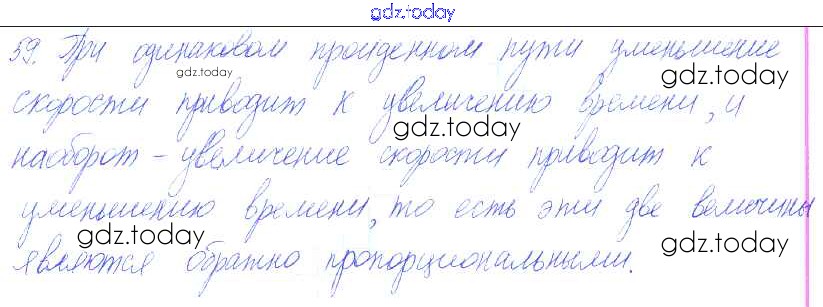 gdz.today
59. При одинаковом пройденном пути уменьшение
gdz.today
gdz.today
скорости приводит к увеличению времени, и
gdz.today
наоборот – увеличение скорости приводит к
уменьшению времени, то есть эти две величины
gdz.today
gdz.today
являются обратно пропорциональными.